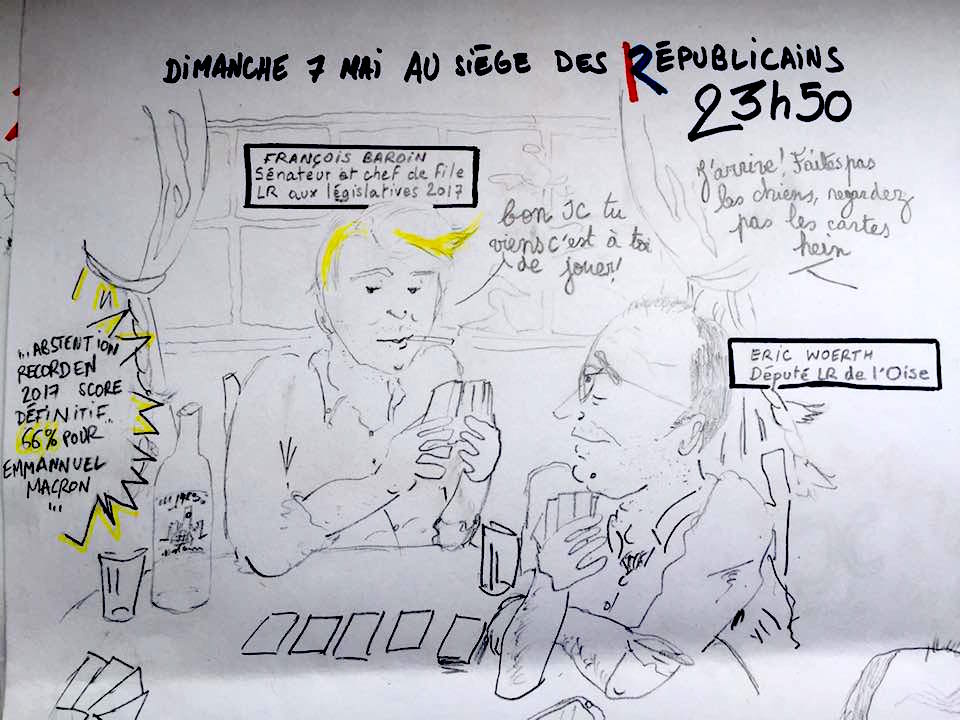 DIMANCHE 7 MAI AU SIÈGE DES RÉPUBLICAINS
23h50
FRANÇOIS BAROIN
Sénateur et chef de File
LR aux législatives 2017
bon JC tu
viens c'est à toi
de jouer!
J'arrive! Faites pas
les chiens, regardez
pas les cartes
hein
ERIC WOERTH
Député LR de l'Oise
... ABSTENTION
RECORD EN
2017 SCORE
DÉFINITIF..
66% POUR
EMMANNUEL
MACRON
...